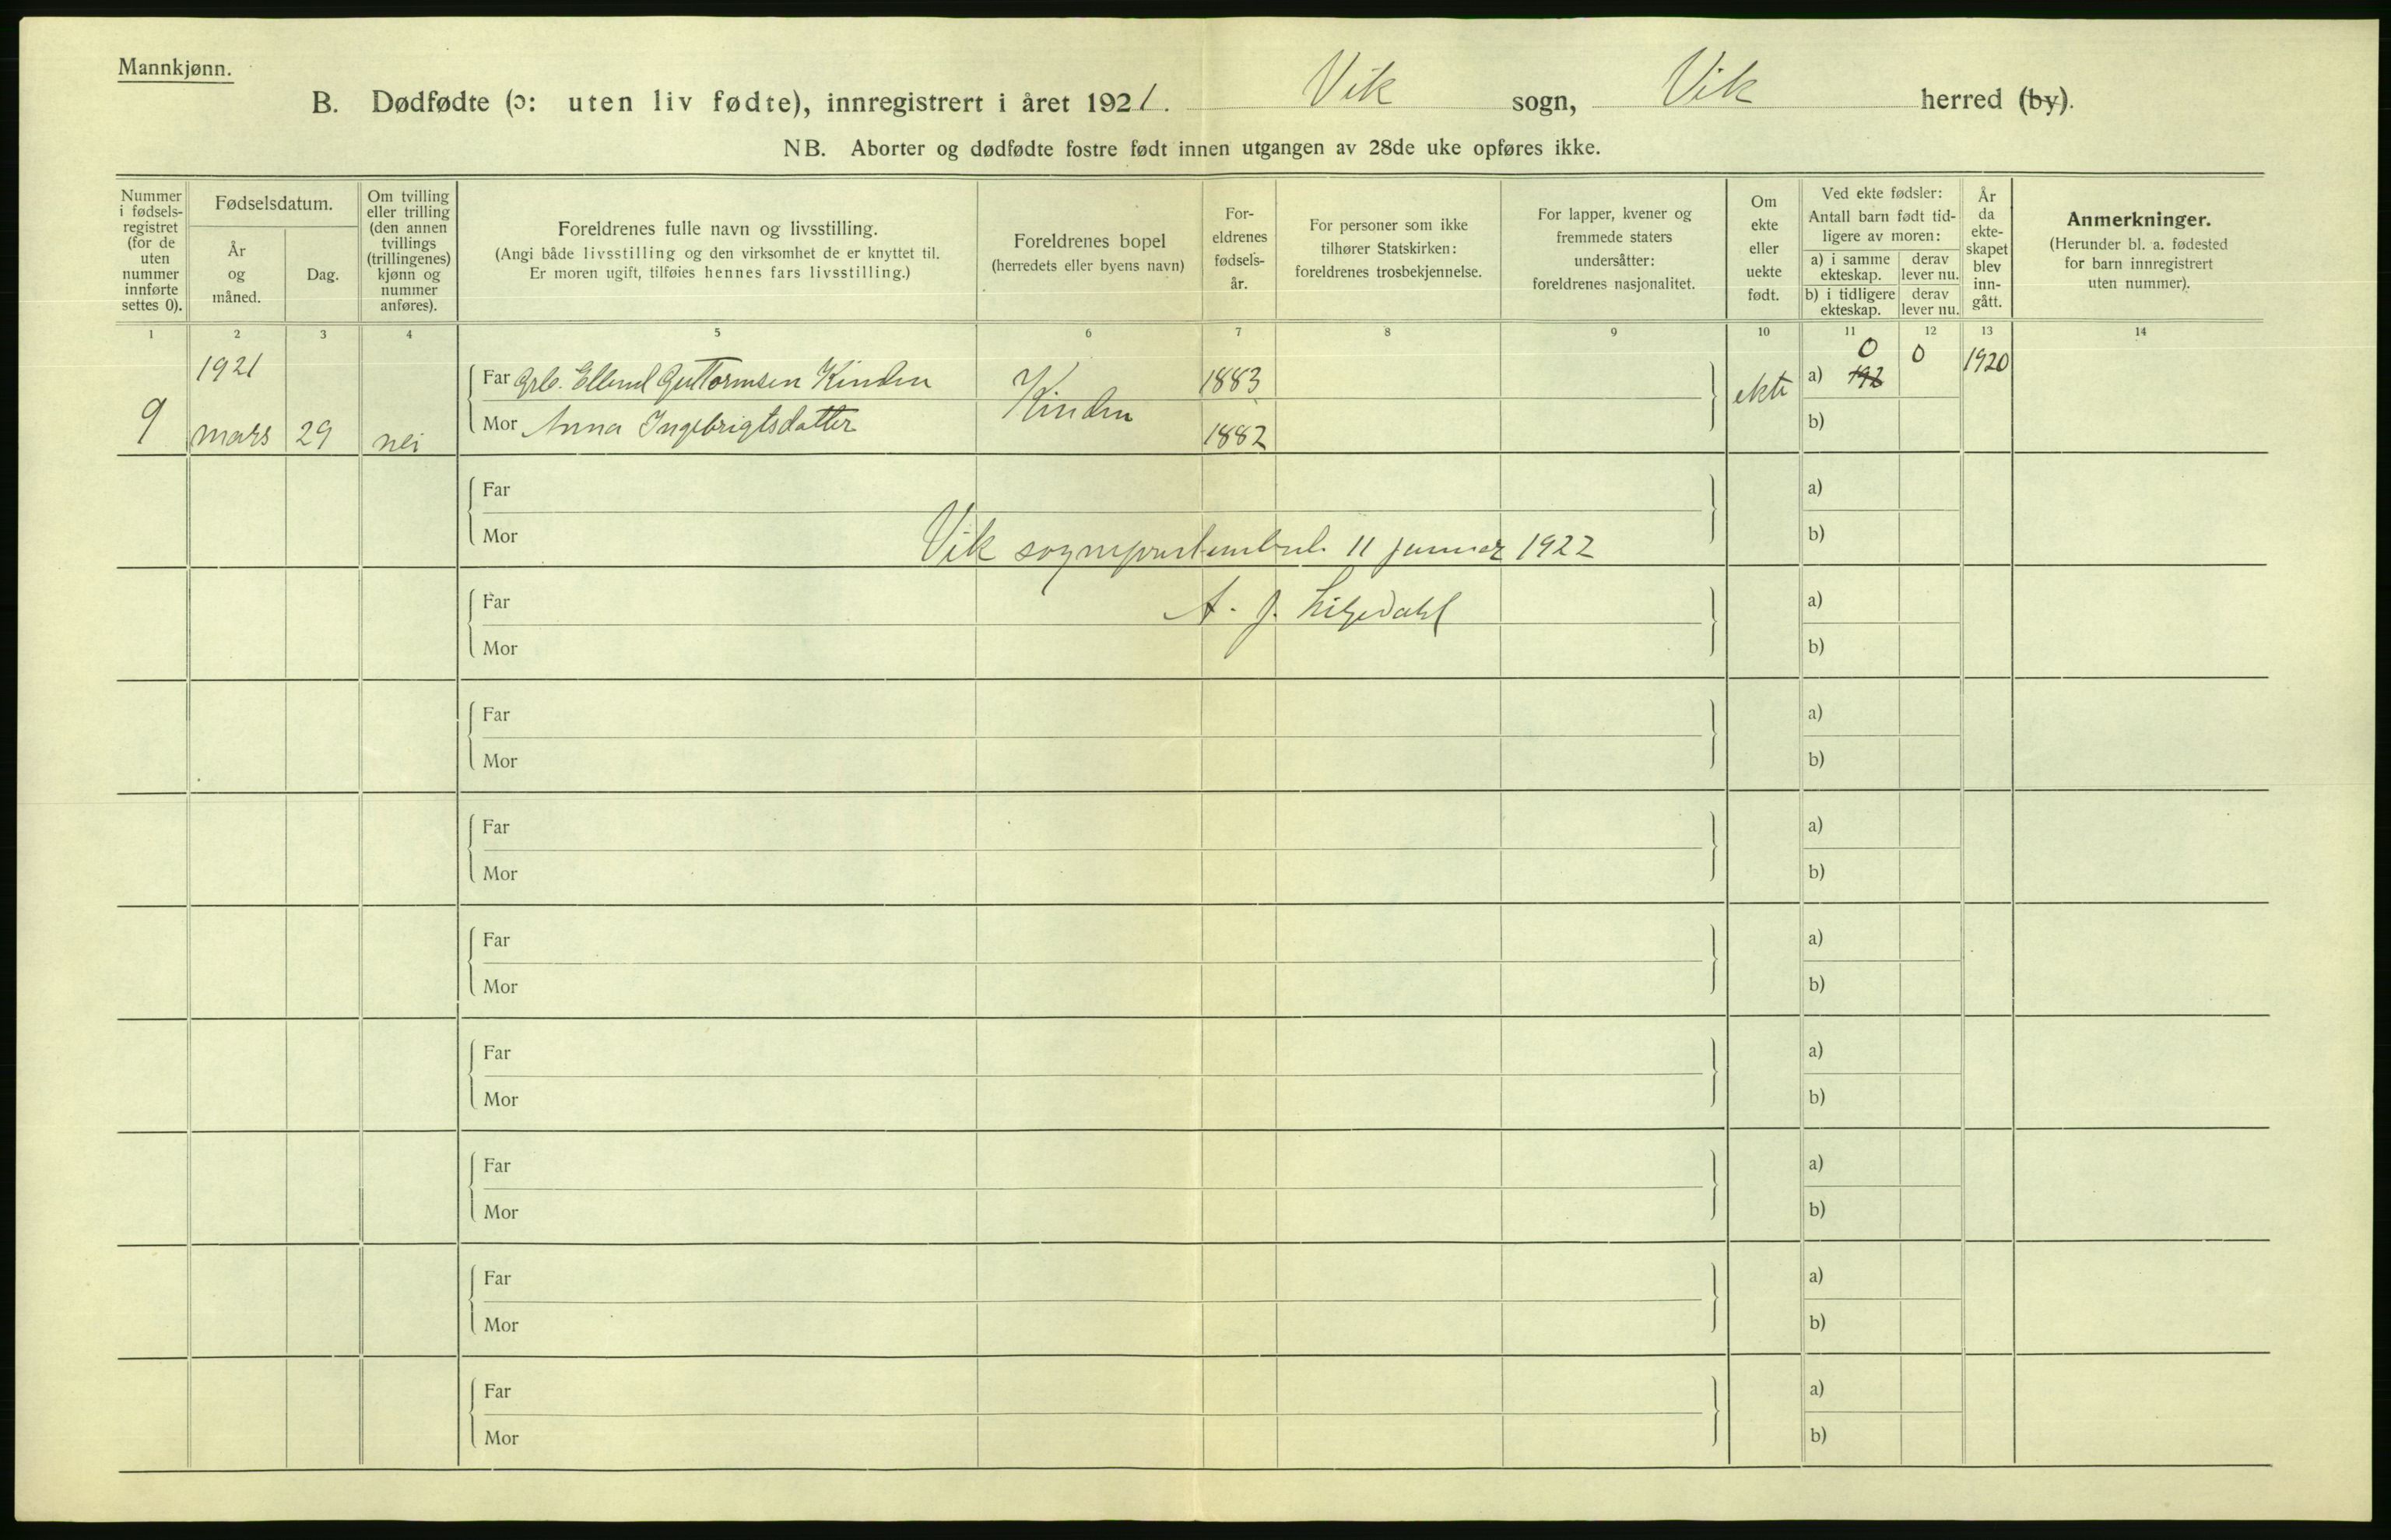 Mannkjønn.
B. Dødfødte (ɔ: uten liv fødte), innregistrert i året 1921. Vik sogn, Vik herred (by).
NB. Aborter og dødfødte fostre født innen utgangen av 28de uke opføres ikke.
Nummer
i fødsels-
registret
(for de
uten
nummer
innførte
settes 0).
Fødselsdatum.
År
og
måned.
Dag.
Om tvilling
eller trilling
(den annen
tvillings
(trillingenes)
kjønn og
nummer
anføres).
Foreldrenes fulle navn og livsstilling.
(Angi både livsstilling og den virksomhet de er knyttet til.
Er moren ugift, tilføies hennes fars livsstilling.)
Foreldrenes bopel
(herredets eller byens navn)
For-
eldrenes
fødsels-
år.
For personer som ikke
tilhører Statskirken:
foreldrenes trosbekjennelse.
For lapper, kvener og
fremmede staters
undersåtter:
foreldrenes nasjonalitet.
Om
ekte
eller
uekte
født.
Ved ekte fødsler:
Antall barn født tid-
ligere av moren:
a) i samme
ekteskap.
derav
lever nu.
b) i tidligere
ekteskap.
derav
lever nu.
År
da
ekte-
skapet
blev
inn-
gått.
Anmerkninger.
(Herunder bl. a. fødested
for barn innregistrert
uten nummer).
1 2 3 4 5 6 7 8 9 10 11 12 13 14
1921
9 mars 29 nei
Far Grb. Ellend Guttormsen Kinden
Mor Anna Ingebrigtsdatter
Kinden
1883
1882
ekte
0
a) 192
0
1920
b)
Far
Mor
a)
b)
Vik 11 januar 1922
Far
Mor
a)
b)
A. J.
Far
Mor
a)
b)
Far
Mor
a)
b)
Far
Mor
a)
b)
Far
Mor
a)
b)
Far
Mor
a)
b)
Far
Mor
a)
b)
Far
Mor
a)
b)